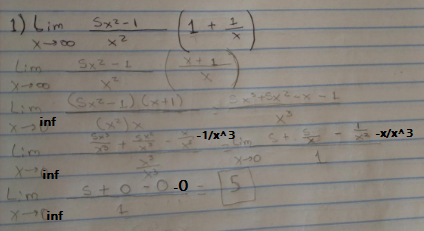 1) Lim x→∞ 5x²-1 / x² (1 + 1/x)
Lim x→∞ 5x²-1 / x² (x+1 / x)
Lim x→ inf (5x²-1)(x+1) / (x²)x = 5x³+5x²-x-1 / x³
Lim x→ inf 5x³/x³ + 5x²/x³ - x/x³ -1/x^3 / x³/x³ = Lim x→0 5 + 5/x - 1/x² -x/x^3 / 1
Lim x→0 inf 5+0-0 -0 / 1 = 5